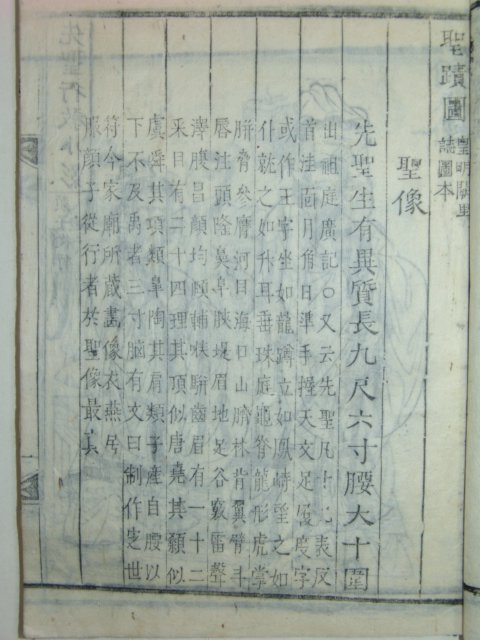 聖蹟圖 皇明闕里
誌圖本
聖像
先聖生有異質長九尺六寸腰大十圍
出祖庭廣記○又云先聖凡十九表反
首洼面月角日準手握天文足履度字
或作王字坐如龍蹲立如鳳峙望之如
仆就之如升耳垂珠庭龜脊龍形虎掌
胼脅參膺河目海口山臍林背翼臂斗
唇注頭隆鼻阜脥堤眉地足谷竅雷聲
澤腹昌顏均頤輔喉騈齒眉有一十二
采目有二十四理其頂似唐堯其顙似
虞舜其項類皐陶其肩類子產自腰以
下不及禹者三寸腦有文曰制作定世
符今家廟所蔵畫像衣燕居
服顔子從行者於聖像最真